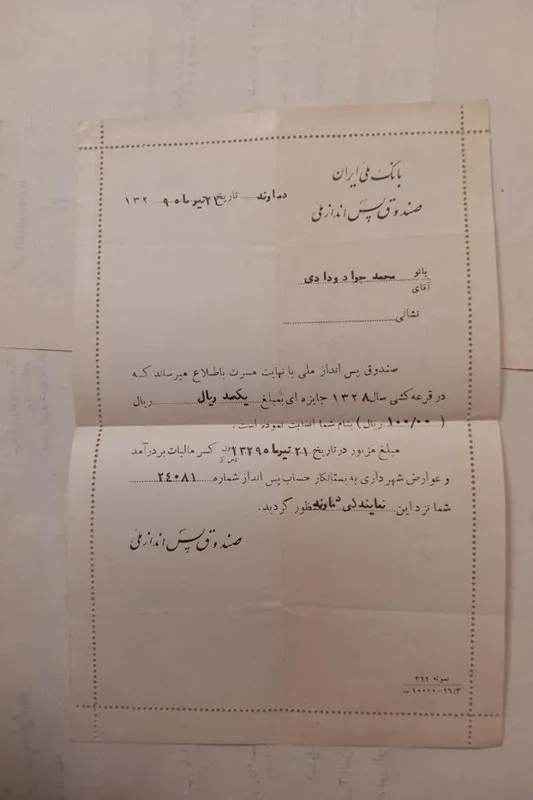 بانک ملی ایران
صندوق پس انداز ملی
دماوند تاریخ ۲۱ تیر ماه ۱۳۲۹
بانو
آقای محمد جواد ودادی
نشانی
صندوق پس انداز ملی با نهایت مسرت باطلاع میرساند که
در قرعه کشی سال ۱۳۲۸ جایزه ای بمبلغ یکصد ریال ریال
( ۱۰۰/۰۰ ریال ) بنام شما اصابت نموده است .
مبلغ مزبور در تاریخ ۲۱ تیر ماه ۱۳۲۹ کسر مالیات بر درآمد
و عوارض شهرداری به بستانکار حساب پس انداز شماره ۲۴۰۸۱
شما نزد این نمایندگی دماوند منظور گردید.
صندوق پس انداز ملی
نمونه ۳۶۲
۱۶/۳-۱۰۰۰۰ ب